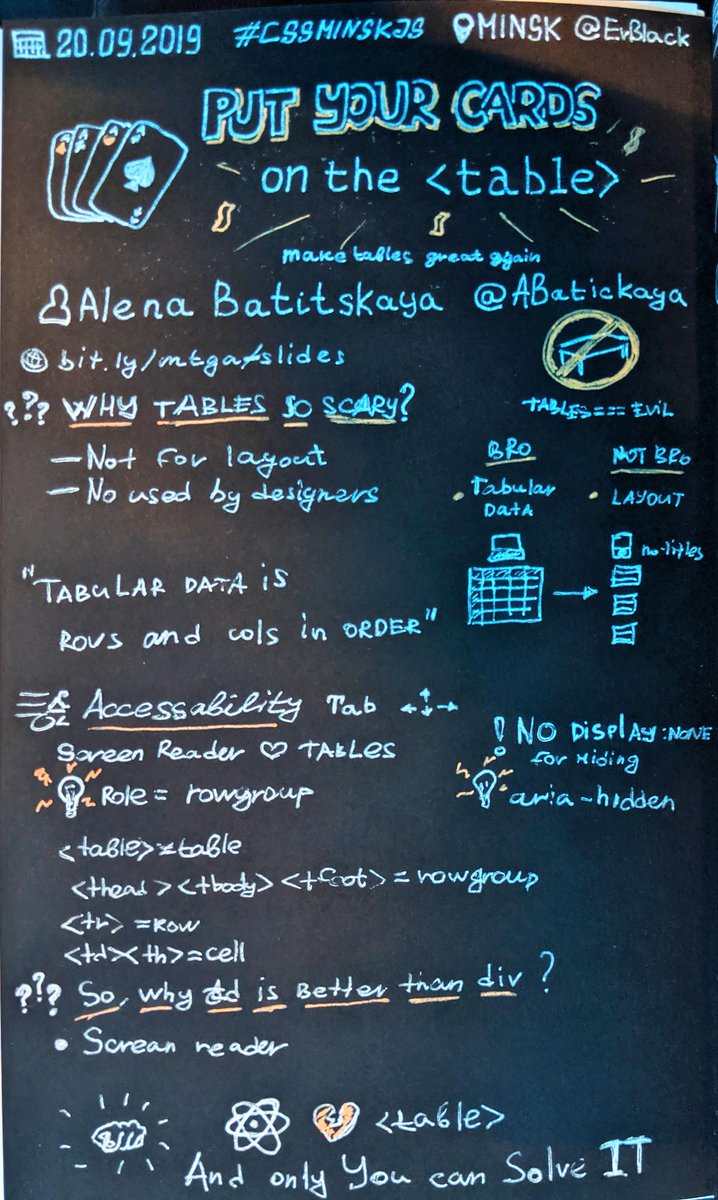 20.09.2019 #CSSMINSKJS MINSK @ErBlack
PUT YOUR CARDS
on the <table>
make tables great again
Alena Batitskaya @ABatickaya
bit.ly/mtga-slides
TABLES=== EVIL
??? WHY TABLES SO SCARY?
— Not for layout
— No used by designers
BRO
• Tabular
DATA
NOT BRO
• LAYOUT
no-titles
"TABULAR DATA is
ROWS and cols in ORDER"
Accessability Tab
Screen Reader ♡ TABLES
Role = rowgroup
! NO DISPLAY:NONE
for Hiding
aria-hidden
<table>=table
<thead><tbody><tfoot> = rowgroup
<tr> = ROW
<td><th>=cell
??? So, why td is Better than div?
• Screan reader
<table>
And only You can Solve IT